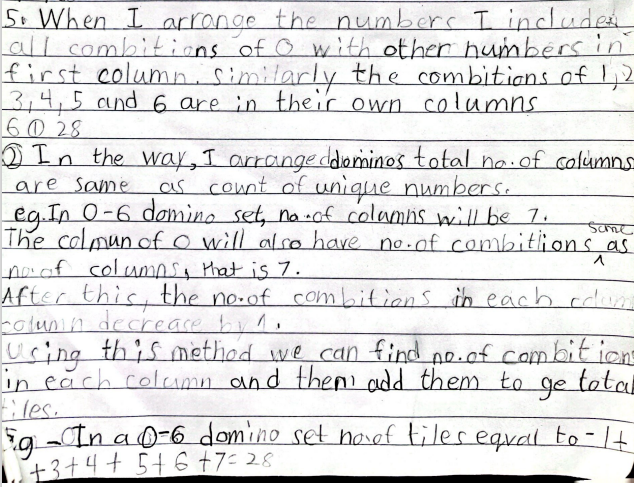 5. When I arrange the numbers I included
all combitions of 0 with other numbers in
first column. Similarly the combitions of 1,2
3,4,5 and 6 are in their own columns
6 ① 28
② In the way, I arranged dominos total no. of columns
are same as count of unique numbers.
eg. In 0-6 domino set, no. of columns will be 7.
same
The colmun of 0 will also have no. of combitiions ^ as
no. of columns, that is 7.
After this, the no. of combitions in each colum
column decrease by 1.
Using this method we can find no. of combitions
in each column and them add them to ge total
tiles.
Eg - In a 0-6 domino set no. of tiles equal to - 1+
+3+4+ 5+ 6 +7= 28